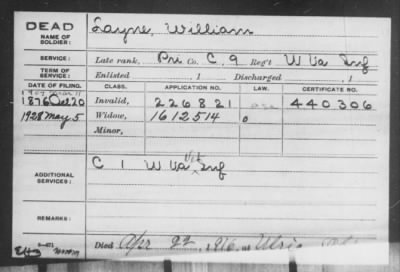 DEAD
NAME OF SOLDIER:
Layne, William
SERVICE:
Late rank, Pri Co. C, 9 Reg't W Va Inf
TERM OF SERVICE:
Enlisted , 1 Discharged , 1
DATE OF FILING. CLASS. APPLICATION NO. LAW. CERTIFICATE NO.
1876 Oct 20 Invalid, 226821 440306
1928 May 5 Widow, 1612514 0
Minor,
ADDITIONAL SERVICES:
C 1 W Va Vet Inf
REMARKS:
Died Apr 22, 1916, at